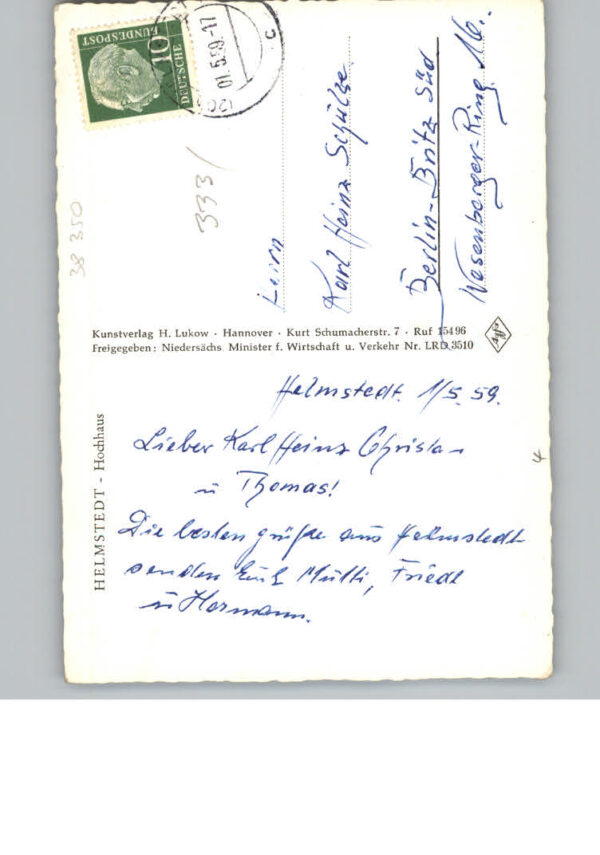 Helmstedt. 1/5. 59.
Lieber Karl Heinz Christa
u Thomas!
Die besten grüße aus Helmstedt
senden Euch Mutti, Friedl
u Hermann.
HELMSTEDT - Hochhaus
Kunstverlag H. Lukow · Hannover · Kurt Schumacherstr. 7 · Ruf 15496
Freigegeben: Niedersächs. Minister f. Wirtschaft u. Verkehr Nr. LRD 3510
Karl Heinz Schulze
Berlin-Britz Süd
Wesenberger-Ring 16.
DEUTSCHE
BUNDESPOST
10
01.5.59-17
c
333/
38 350
4